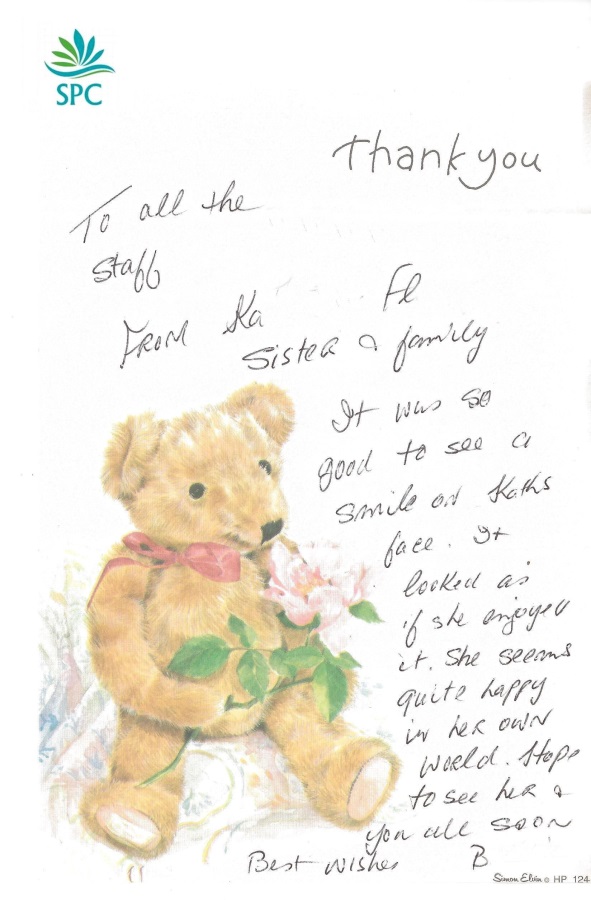 SPC
Thank you
To all the
Staff
From Ka Fl
Sister & family
It was so
good to see a
smile on Kaths
face. It
looked as
if she enjoyed
it. She seems
quite happy
in her own
world. Hope
to see her &
you all soon
Best wishes B
Simon Elvin © HP 124